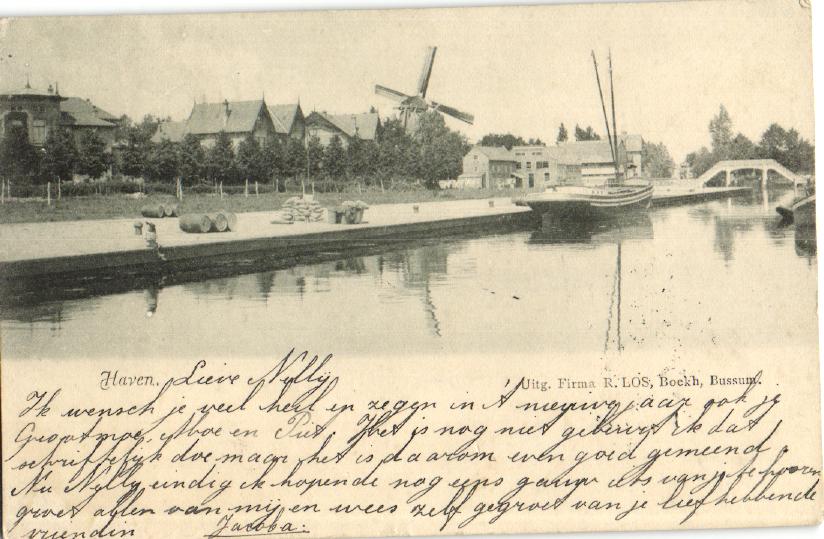 Haven. Lieve Nelly
Uitg. Firma R. LOS, Boekh, Bussum.
Ik wensch je veel heil en zegen in 't nieuwe jaar ook je
Grootmoe, en Piet. Het is nog niet gebeurt ik dat
schriftelijk doe maar het is daarom even goed gemeend.
Nu Nelly eindig ik hopende nog eens gauw iets van je te hooren
groet allen van mij en wees zelf gegroet van je liefhebbende
vriendin Jacoba.